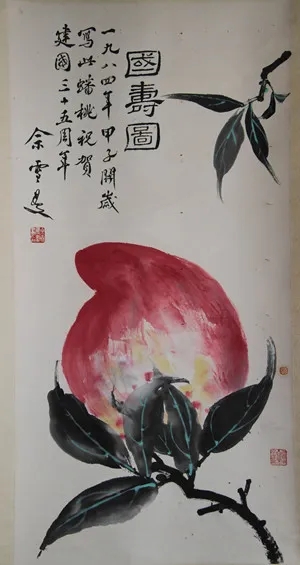 國壽圖
一九八四年甲子開歲
寫此蟠桃祝賀
建國三十五周年
余雪曼